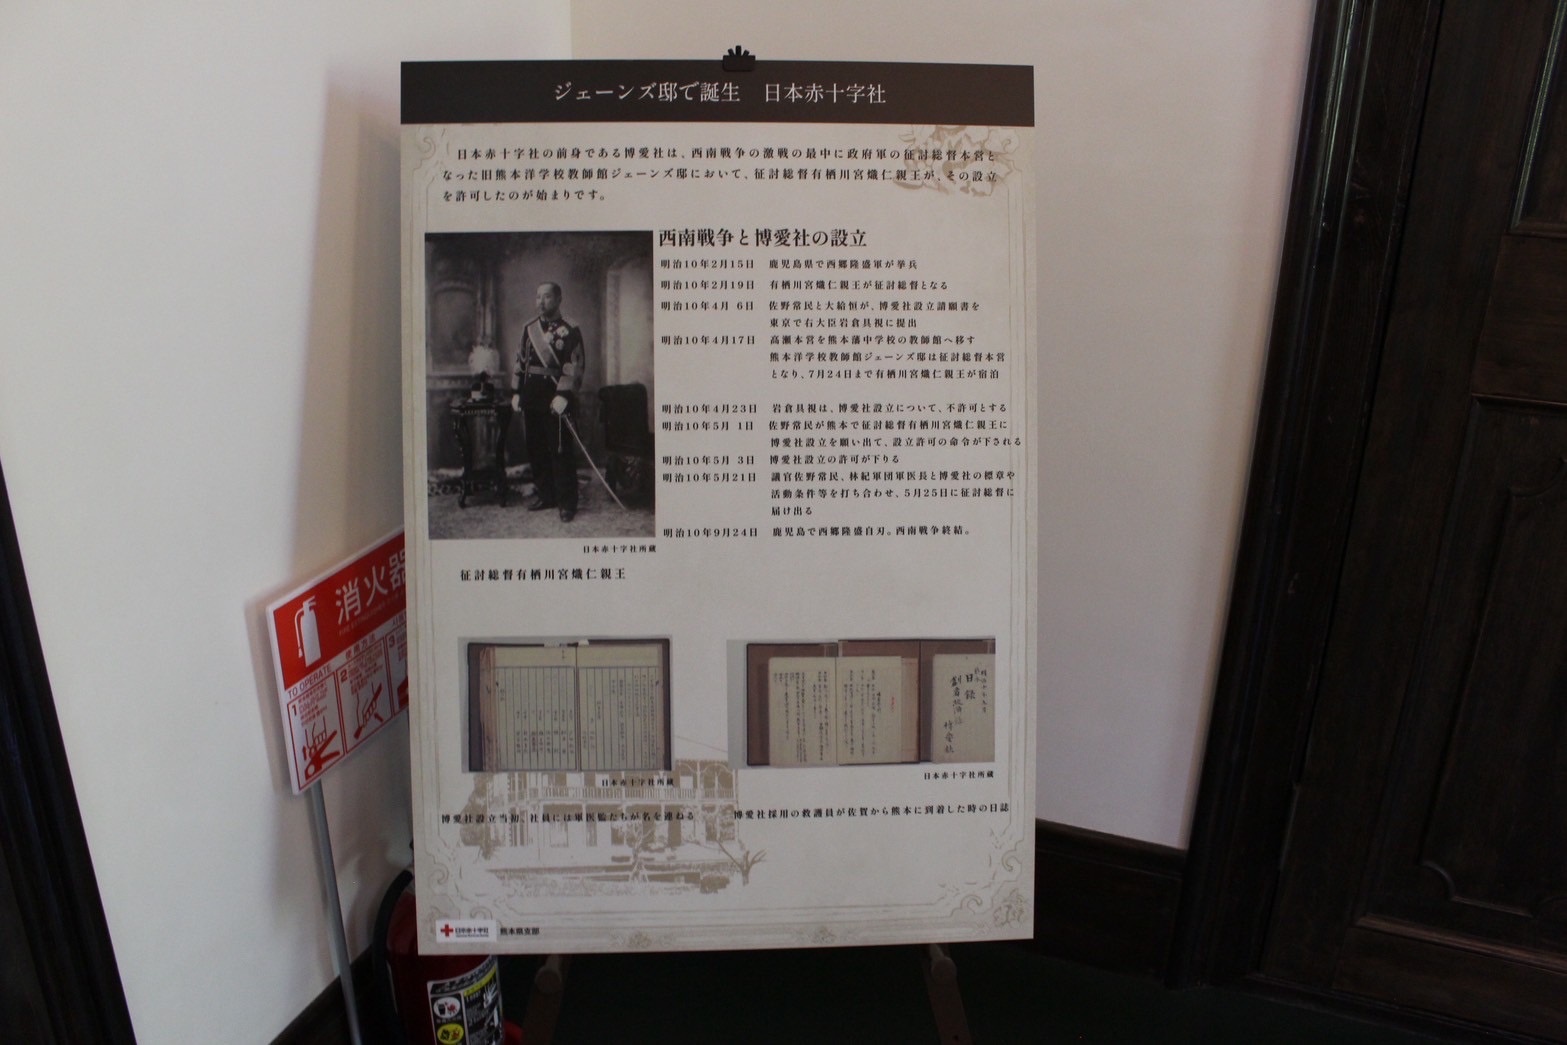 ジェーンズ邸で誕生　日本赤十字社
日本赤十字社の前身である博愛社は、西南戦争の激戦の最中に政府軍の征討総督本営と
なった旧熊本洋学校教師館ジェーンズ邸において、征討総督有栖川宮熾仁親王が、その設立
を許可したのが始まりです。
西南戦争と博愛社の設立
明治10年2月15日　鹿児島県で西郷隆盛軍が挙兵
明治10年2月19日　有栖川宮熾仁親王が征討総督となる
明治10年4月 6日　佐野常民と大給恒が、博愛社設立請願書を
東京で右大臣岩倉具視に提出
明治10年4月17日　高瀬本営を熊本藩中学校の教師館へ移す
熊本洋学校教師館ジェーンズ邸は征討総督本営
となり、7月24日まで有栖川宮熾仁親王が宿泊
明治10年4月23日　岩倉具視は、博愛社設立について、不許可とする
明治10年5月 1日　佐野常民が熊本で征討総督有栖川宮熾仁親王に
博愛社設立を願い出て、設立許可の命令が下される
明治10年5月 3日　博愛社設立の許可が下りる
明治10年5月21日　議官佐野常民、林紀軍団軍医長と博愛社の標章や
活動条件等を打ち合わせ、5月25日に征討総督に
届け出る
明治10年9月24日　鹿児島で西郷隆盛自刃。西南戦争終結。
日本赤十字社所蔵
征討総督有栖川宮熾仁親王
日本赤十字社所蔵
日本赤十字社所蔵
博愛社設立当初、社員には軍医監たちが名を連ねる
博愛社採用の救護員が佐賀から熊本に到着した時の日誌
日本赤十字社　熊本県支部
消火器
TO OPERATE
1
2
3